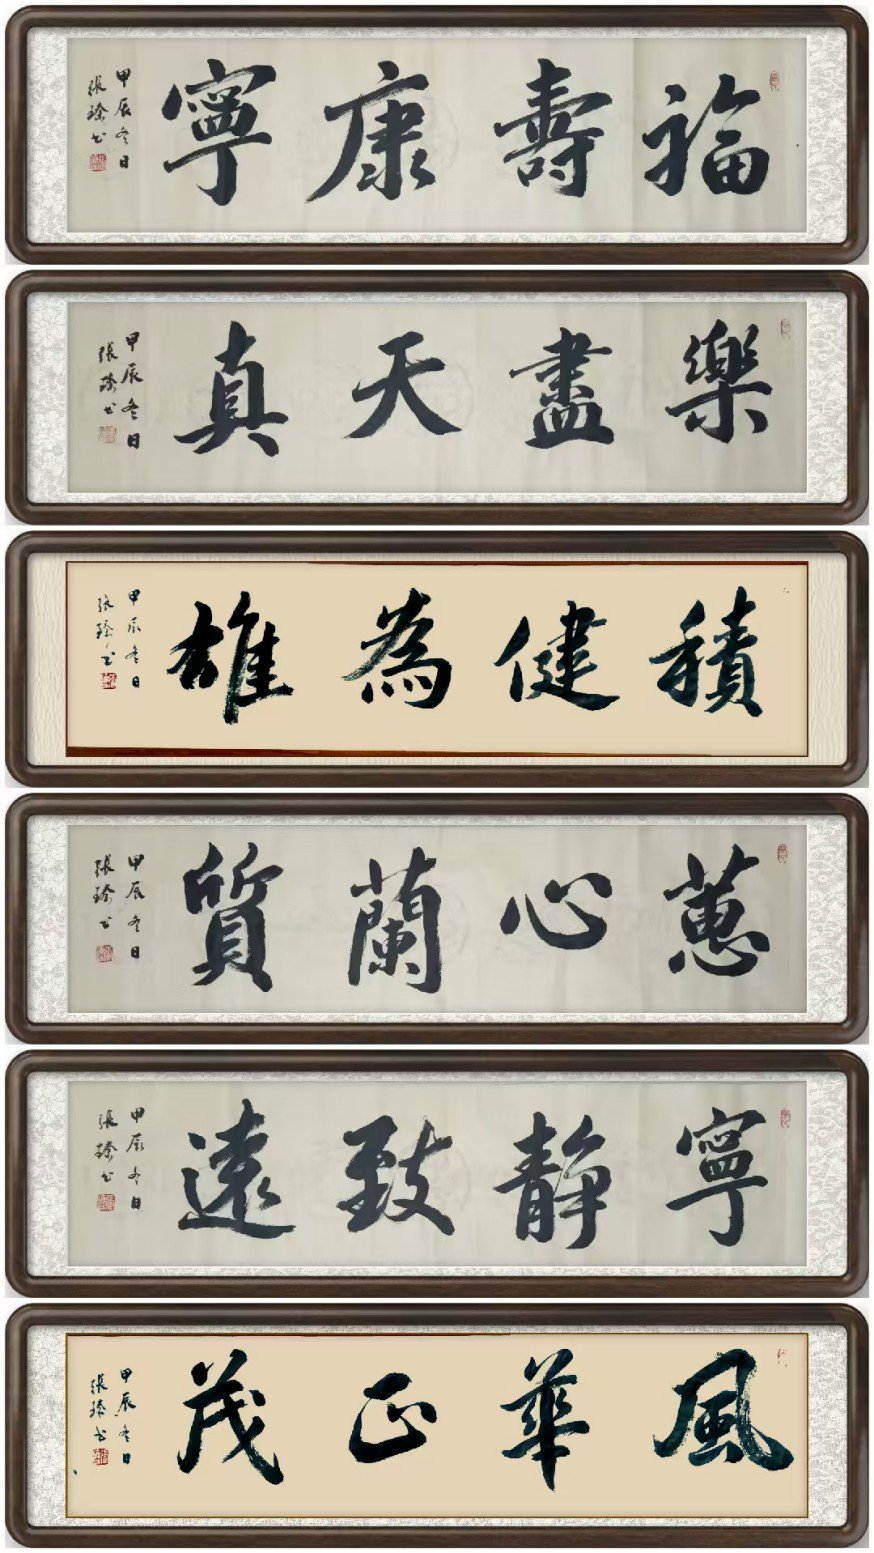 福壽康寧
甲辰冬日
張書
樂盡天真
甲辰冬日
張書
積健為雄
甲辰冬日
張書
蕙心蘭質
甲辰冬日
張書
寧静致遠
甲辰冬日
張書
風華正茂
甲辰冬日
張書